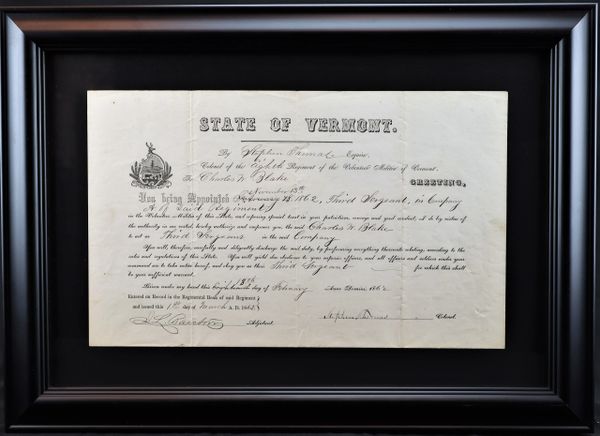 STATE OF VERMONT.
By Stephen Thomas Esquire,
Colonel of the Eighth Regiment of the Volunteer Militia of Vermont.
To Charles W Blake
GREETING,
November 13th
You being Appointed February 18 1862, Third Sergeant, in Company
A of said Regiment
in the Volunteer Militia of this State, and reposing special trust in your patriotism, courage and good conduct, I do by virtue of
the authority in me vested, hereby authorize and empower you, the said Charles W. Blake
to act as Third Sergeant in the said Company
You will, therefore, carefully and diligently discharge the said duty, by performing everything thereunto relating, according to the
rules and regulations of this State. You will yield due obedience to your superior officers, and all officers and soldiers under your
command are to take notice hereof, and obey you as their Third Sergeant for which this shall
be your sufficient warrant.
Given under my hand this 18th day of February Anno Domini 1862
Entered on Record in the Regimental Book of said Regiment
and issued this 1st day of March A. D. 1862
Adjutant.
Stephen Thomas Colonel.